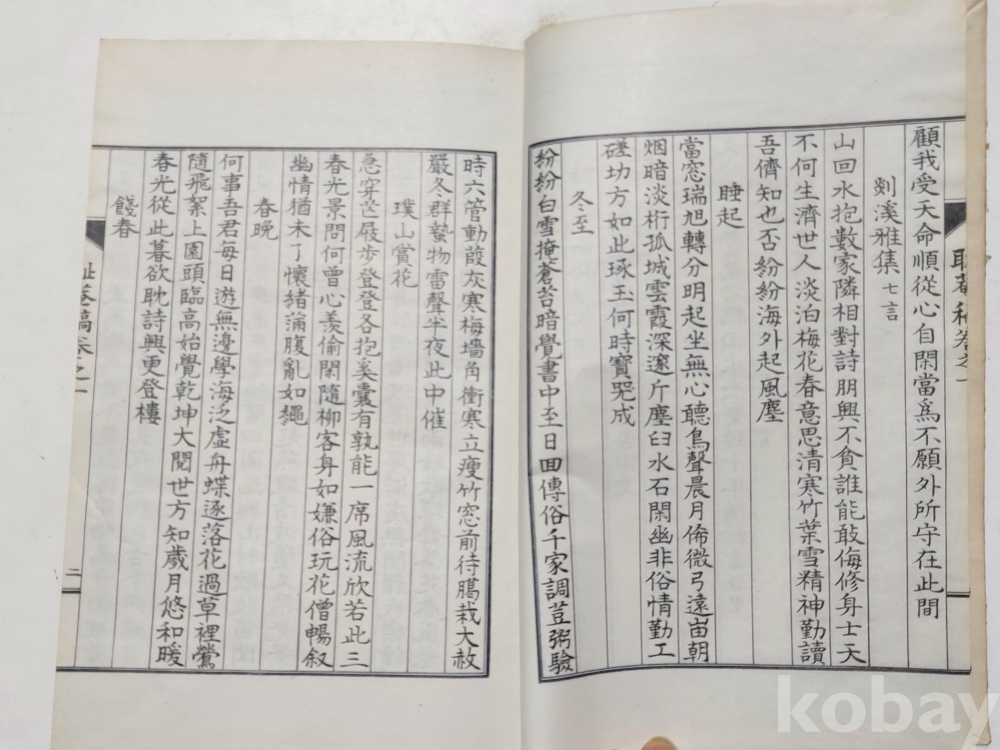 顧我受天命順從心自閑當爲不願外所守在此間
剡溪雅集 七言
山回水抱數家隣相對詩朋興不貧誰能敢侮修身士天
不何生濟世人淡泊梅花春意思清寒竹葉雪精神勤讀
吾儕知也否紛紛海外起風塵
睡起
當窓瑞旭轉分明起坐無心聽鳥聲晨月倚微弓遠峀朝
烟暗淡桁孤城雲霞深邃斤塵臼水石閑幽非俗情勤工
磋功方如此琢玉何時寶器成
冬至
紛紛白雪掩蒼苔暗覺書中至日回傳俗千家調荳粥驗
時六管動葭灰寒梅墻角衝寒立瘦竹窓前待臈栽大赦
嚴冬群蟄物雷聲半夜此中催
璞山賞花
急穿芒屐步登登各抱奚囊有孰能一席風流欣若此三
春光景問何曾心羡偷閑隨柳客身如嫌俗玩花僧暢叙
幽情猶未了懷緖滿腹亂如繩
春晚
何事吾君每日遊無邊學海泛虛舟蝶逐落花過草裡鶯
隨飛絮上園頭臨高始覺乾坤大閱世方知歲月悠和暖
春光從此暮欲耽詩興更登樓
餞春
二
kobay